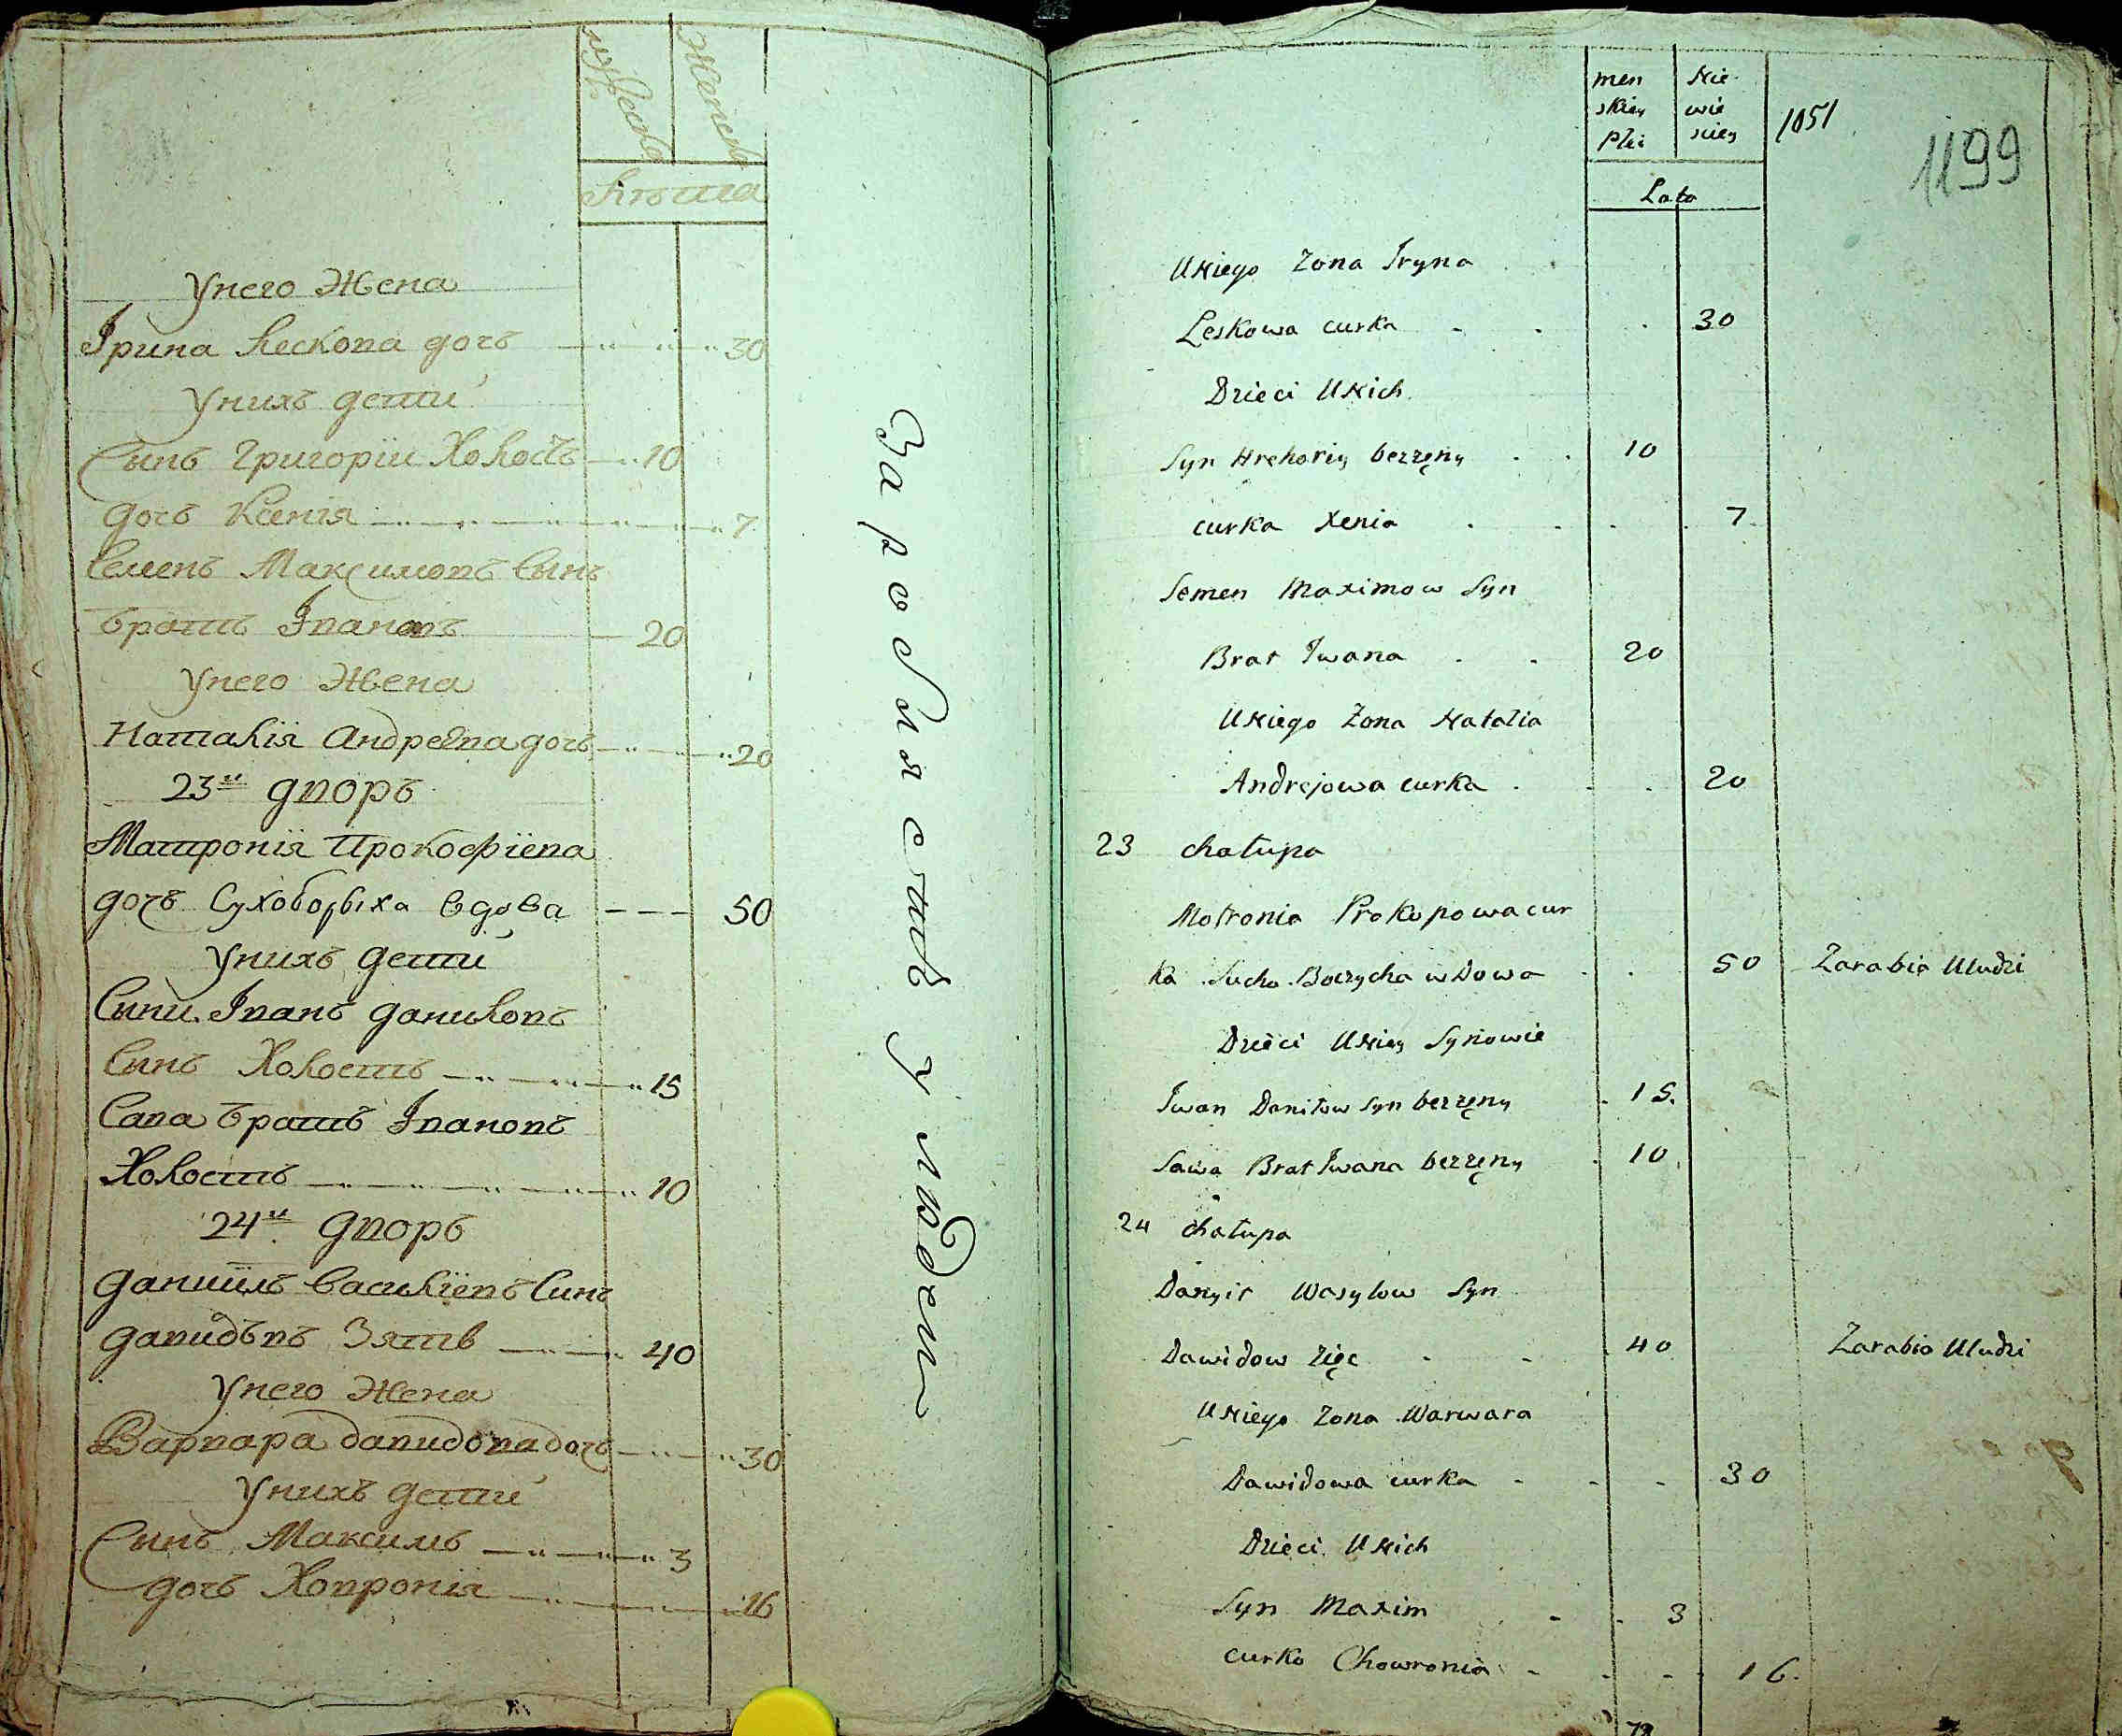 мужеска
Женска
Лѣта
Унего Жена
Ірина Лескова дочь 30
Унихъ дети
Сынъ Григорїи Холостъ 10
дочь Ксенїя 7
Семенъ Максимовъ Сынъ
братъ Івановъ 20
Унего Жена
Наталїя Андреевна дочь 20
23й дворъ
Матронїя Прокофїева
дочь Сухоборыха вдова 50
Унихъ дети
Сыни Іванъ даниловъ
Сынъ Холостъ 15
Сава братъ Івановъ
Холостъ 10
24й дворъ
данїилъ василїевъ Синъ
давидѣвъ Зять 40
Унего Жена
Варвара давидова дочь 30
Унихъ дети
Сынъ Максимъ 3
дочь Ховронїя 16
Заробляетъ у людеи
men Nie
skiey wie
płci sciey
1051
1199
Lata
U Niego Zona Iryna
Leskowa curka 30
Dzieci U Nich
Syn Hrehoriy bezzęny 10
curka Xenia 7
Semen Maximow Syn
Brat Iwana 20
U Niego Zona Natalia
Andrejowa curka 20
23 chałupa
Motronia Prokopowa cur
ka Sucho Borzycha wdowa 50 Zarabia U ludzi
Dzieci U Niey Synowie
Iwan Daniłow syn bezzęny 15
Sawa Brat Iwana bezzęny 10
24 chałupa
Danyił Wasylow Syn
Dawidow zięc 40 Zarabia U ludzi
U Niego Zona Warwara
Dawidowa curka 30
Dzieci U Nich
Syn Maxim 3
curka Chowronia 16